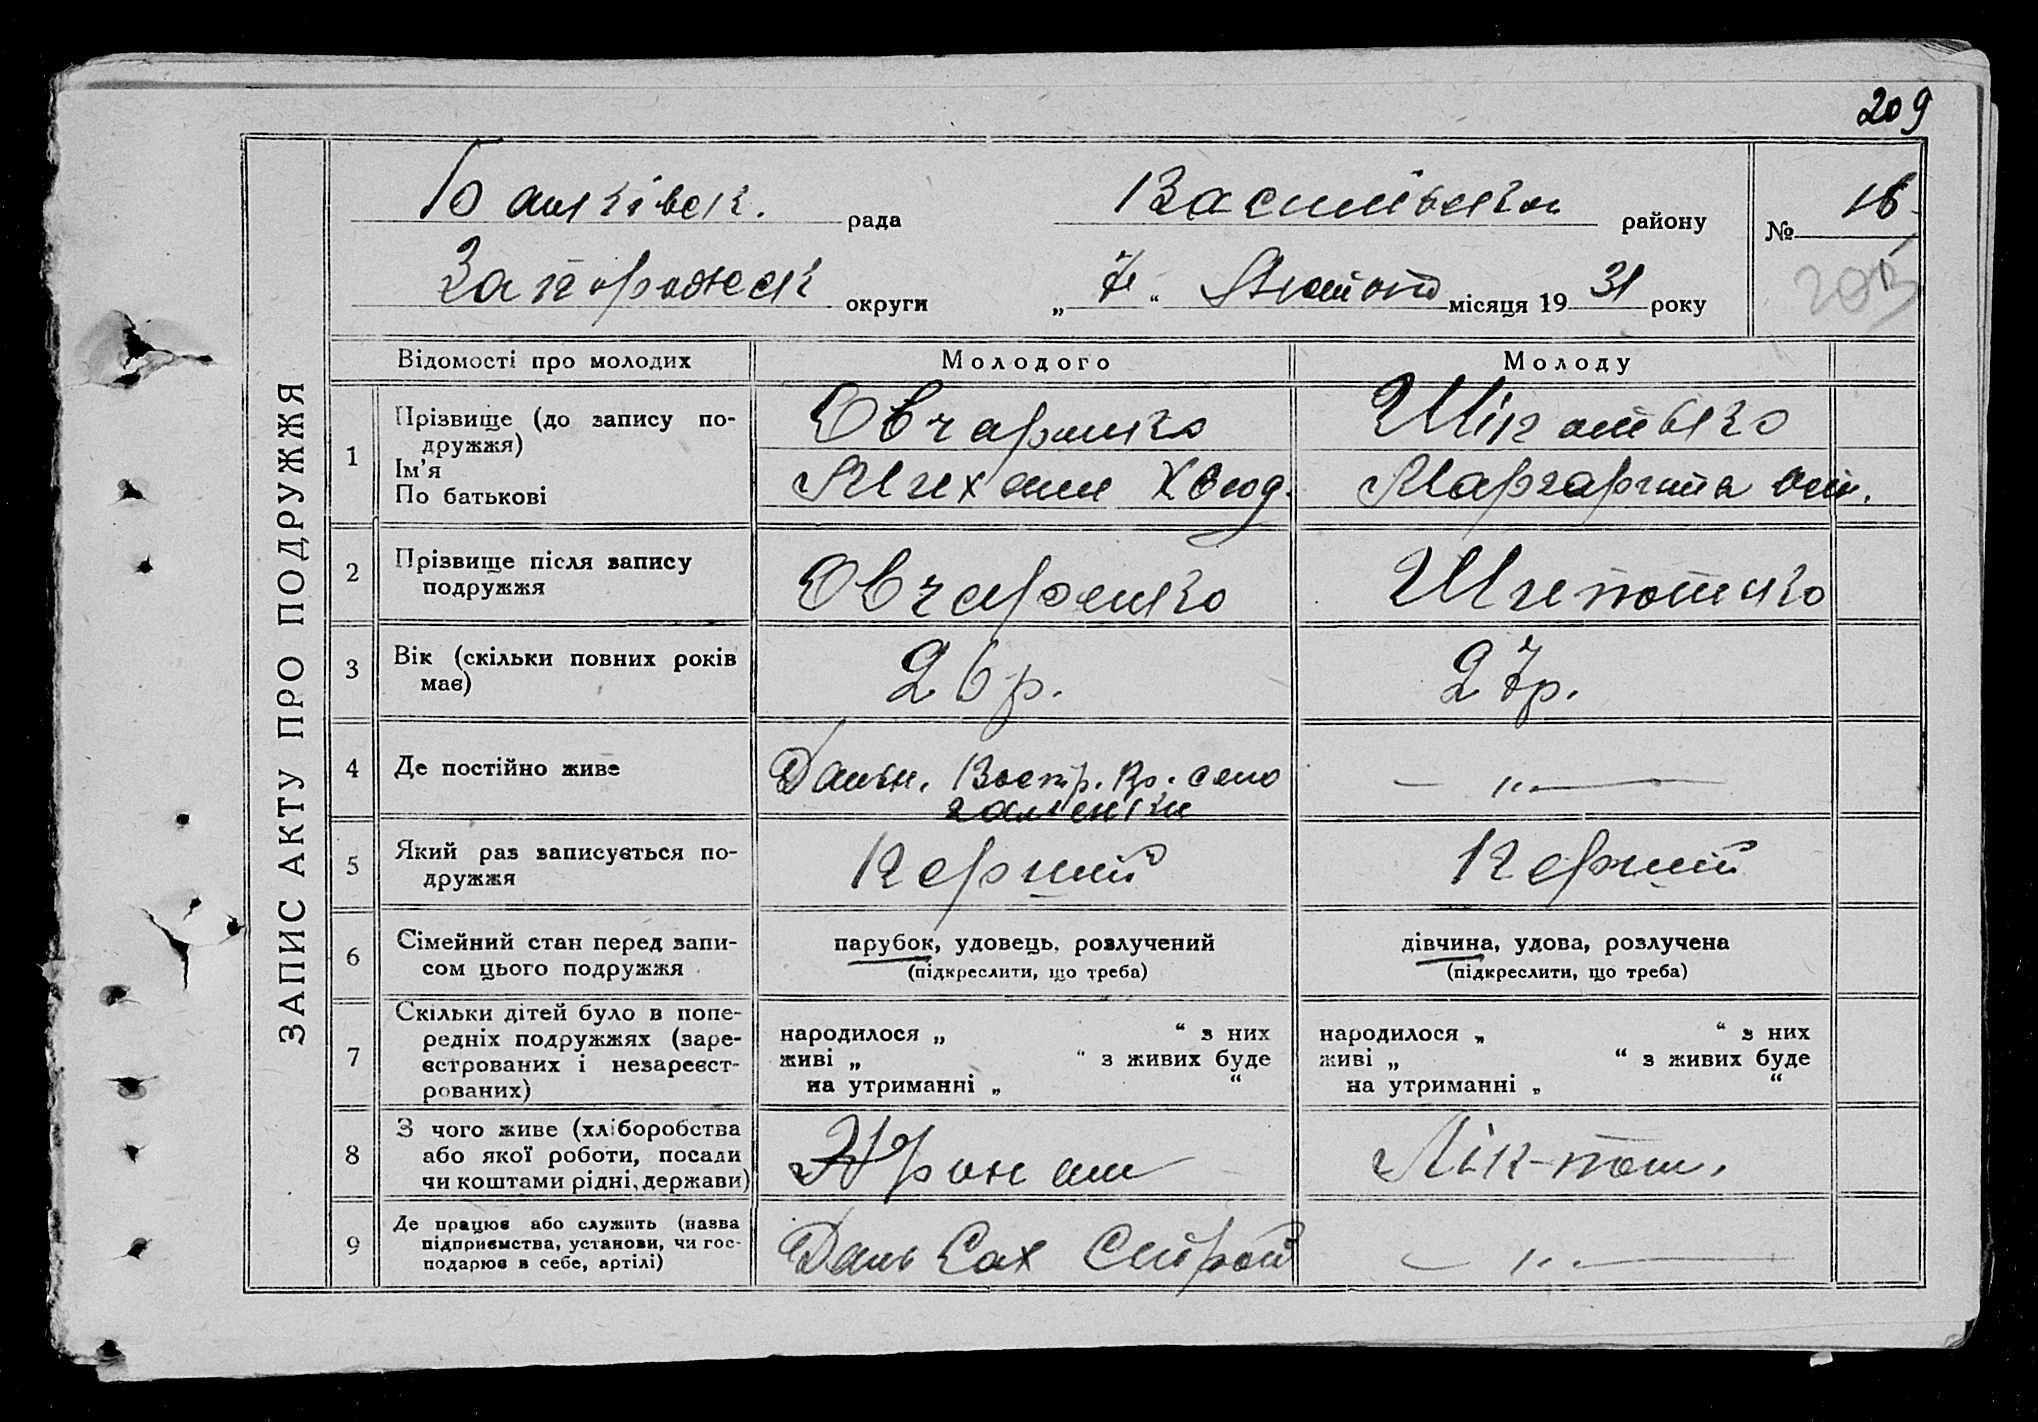 209
Балківск. рада Василівско району № 16
Запорожск округи „ 7 “ Лютого місяця 19 31 року
203
ЗАПИС АКТУ ПРО ПОДРУЖЖЯ
Відомості про молодих Молодого Молоду
1 Прізвище (до запису по-
дружжя)
Ім’я
По батькові
Овчаренко
Михаил Хвиод.
Шікотько
Маргарита
2 Прізвище після запису
подружжя
Овчаренко
3 Вік (скільки повних років
має)
26 р. 27 р.
4 Де постійно живе
Дальн. Востр. Кр. село
— „ —
5 Який раз записується по-
дружжя
Перший Перший
6 Сімейний стан перед запи-
сом цього подружжя
парубок, удовець, розлучений
(підкреслити, що треба)
дівчина, удова, розлучена
(підкреслити, що треба)
7 Скільки дітей було в попе-
редніх подружжях (заре-
єстрованих і незареєст-
рованих)
народилося „ “ з них
живі „ “ з живих буде
на утриманні „ “
народилося „ “ з них
живі „ “ з живих буде
на утриманні „ “
8 З чого живе (хліборобства
або якої роботи, посади
чи коштами рідні, держави)
9 Де працює або служить (назва
підприємства, установи, чи гос-
подарює в себе, артілі)
Даль Сах Строй
— „ —